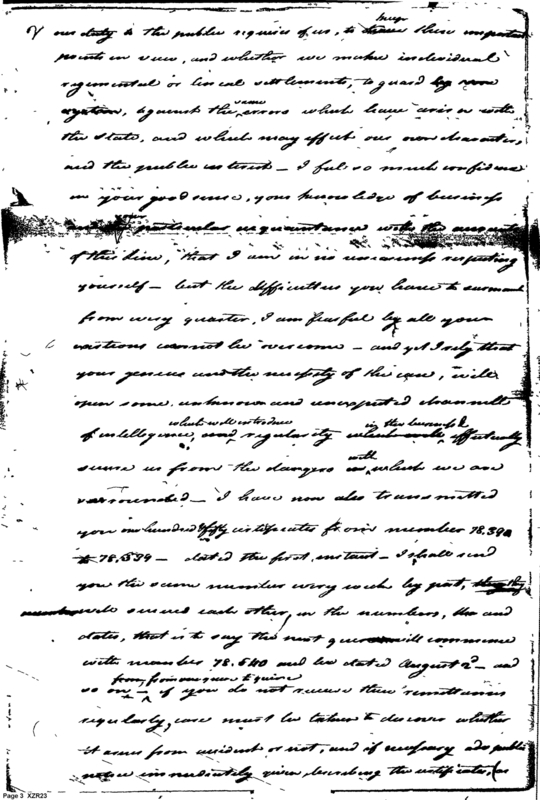 our duty to the public requires of us, to keep these important
points in view, and whether we make individual
regimental or lineal settlements, to guard
against the same errors which have arisen with
the State, and which may effect our own character,
and the public interest — I feel so much confidence
in your good sense, your knowledge of business
and particular acquaintance with the accounts
of this line, that I am in no uneasiness respecting
yourself — but the difficulties you have to surmount
from every quarter, I am fearful by all your
cautions cannot be overcome — and yet I rely that
your genius and the necessity of the case, will
open some unknown and unexpected channells
which will introduce in the business &
of intellegence, and regularity which will effectually
secure us from the dangers with which we are
surrounded — I have now also transmitted
you one hundred & fifty certificates from number 78.390
to 78,539 — dated the first instant — I shall send
you the same number every week by post,
will succeed each other, in the numbers, and
dates, that is to say the next will commence
with number 78.540 and be dated August 2d — and
from, from one quire to quire
so on — if you do not receive these remittances
regularly, care must be taken to discover whether
it arises from accident or not, and if necessary public
notice immediately given, describing the certificates, (as
Page 3 XZR23